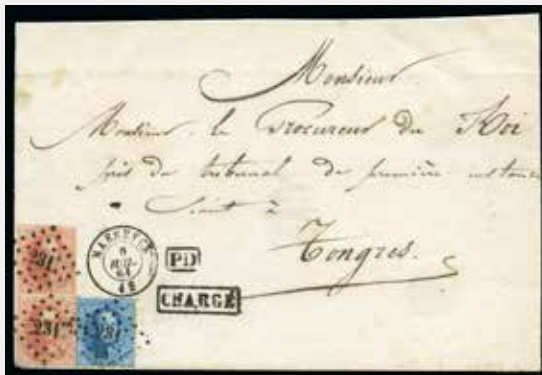 Monsieur
Monsieur le Procureur du Roi
près du tribunal de première instance
séant à
Tongres.
MAESEYCK
6
1864
PD
CHARGÉ
231
231
231